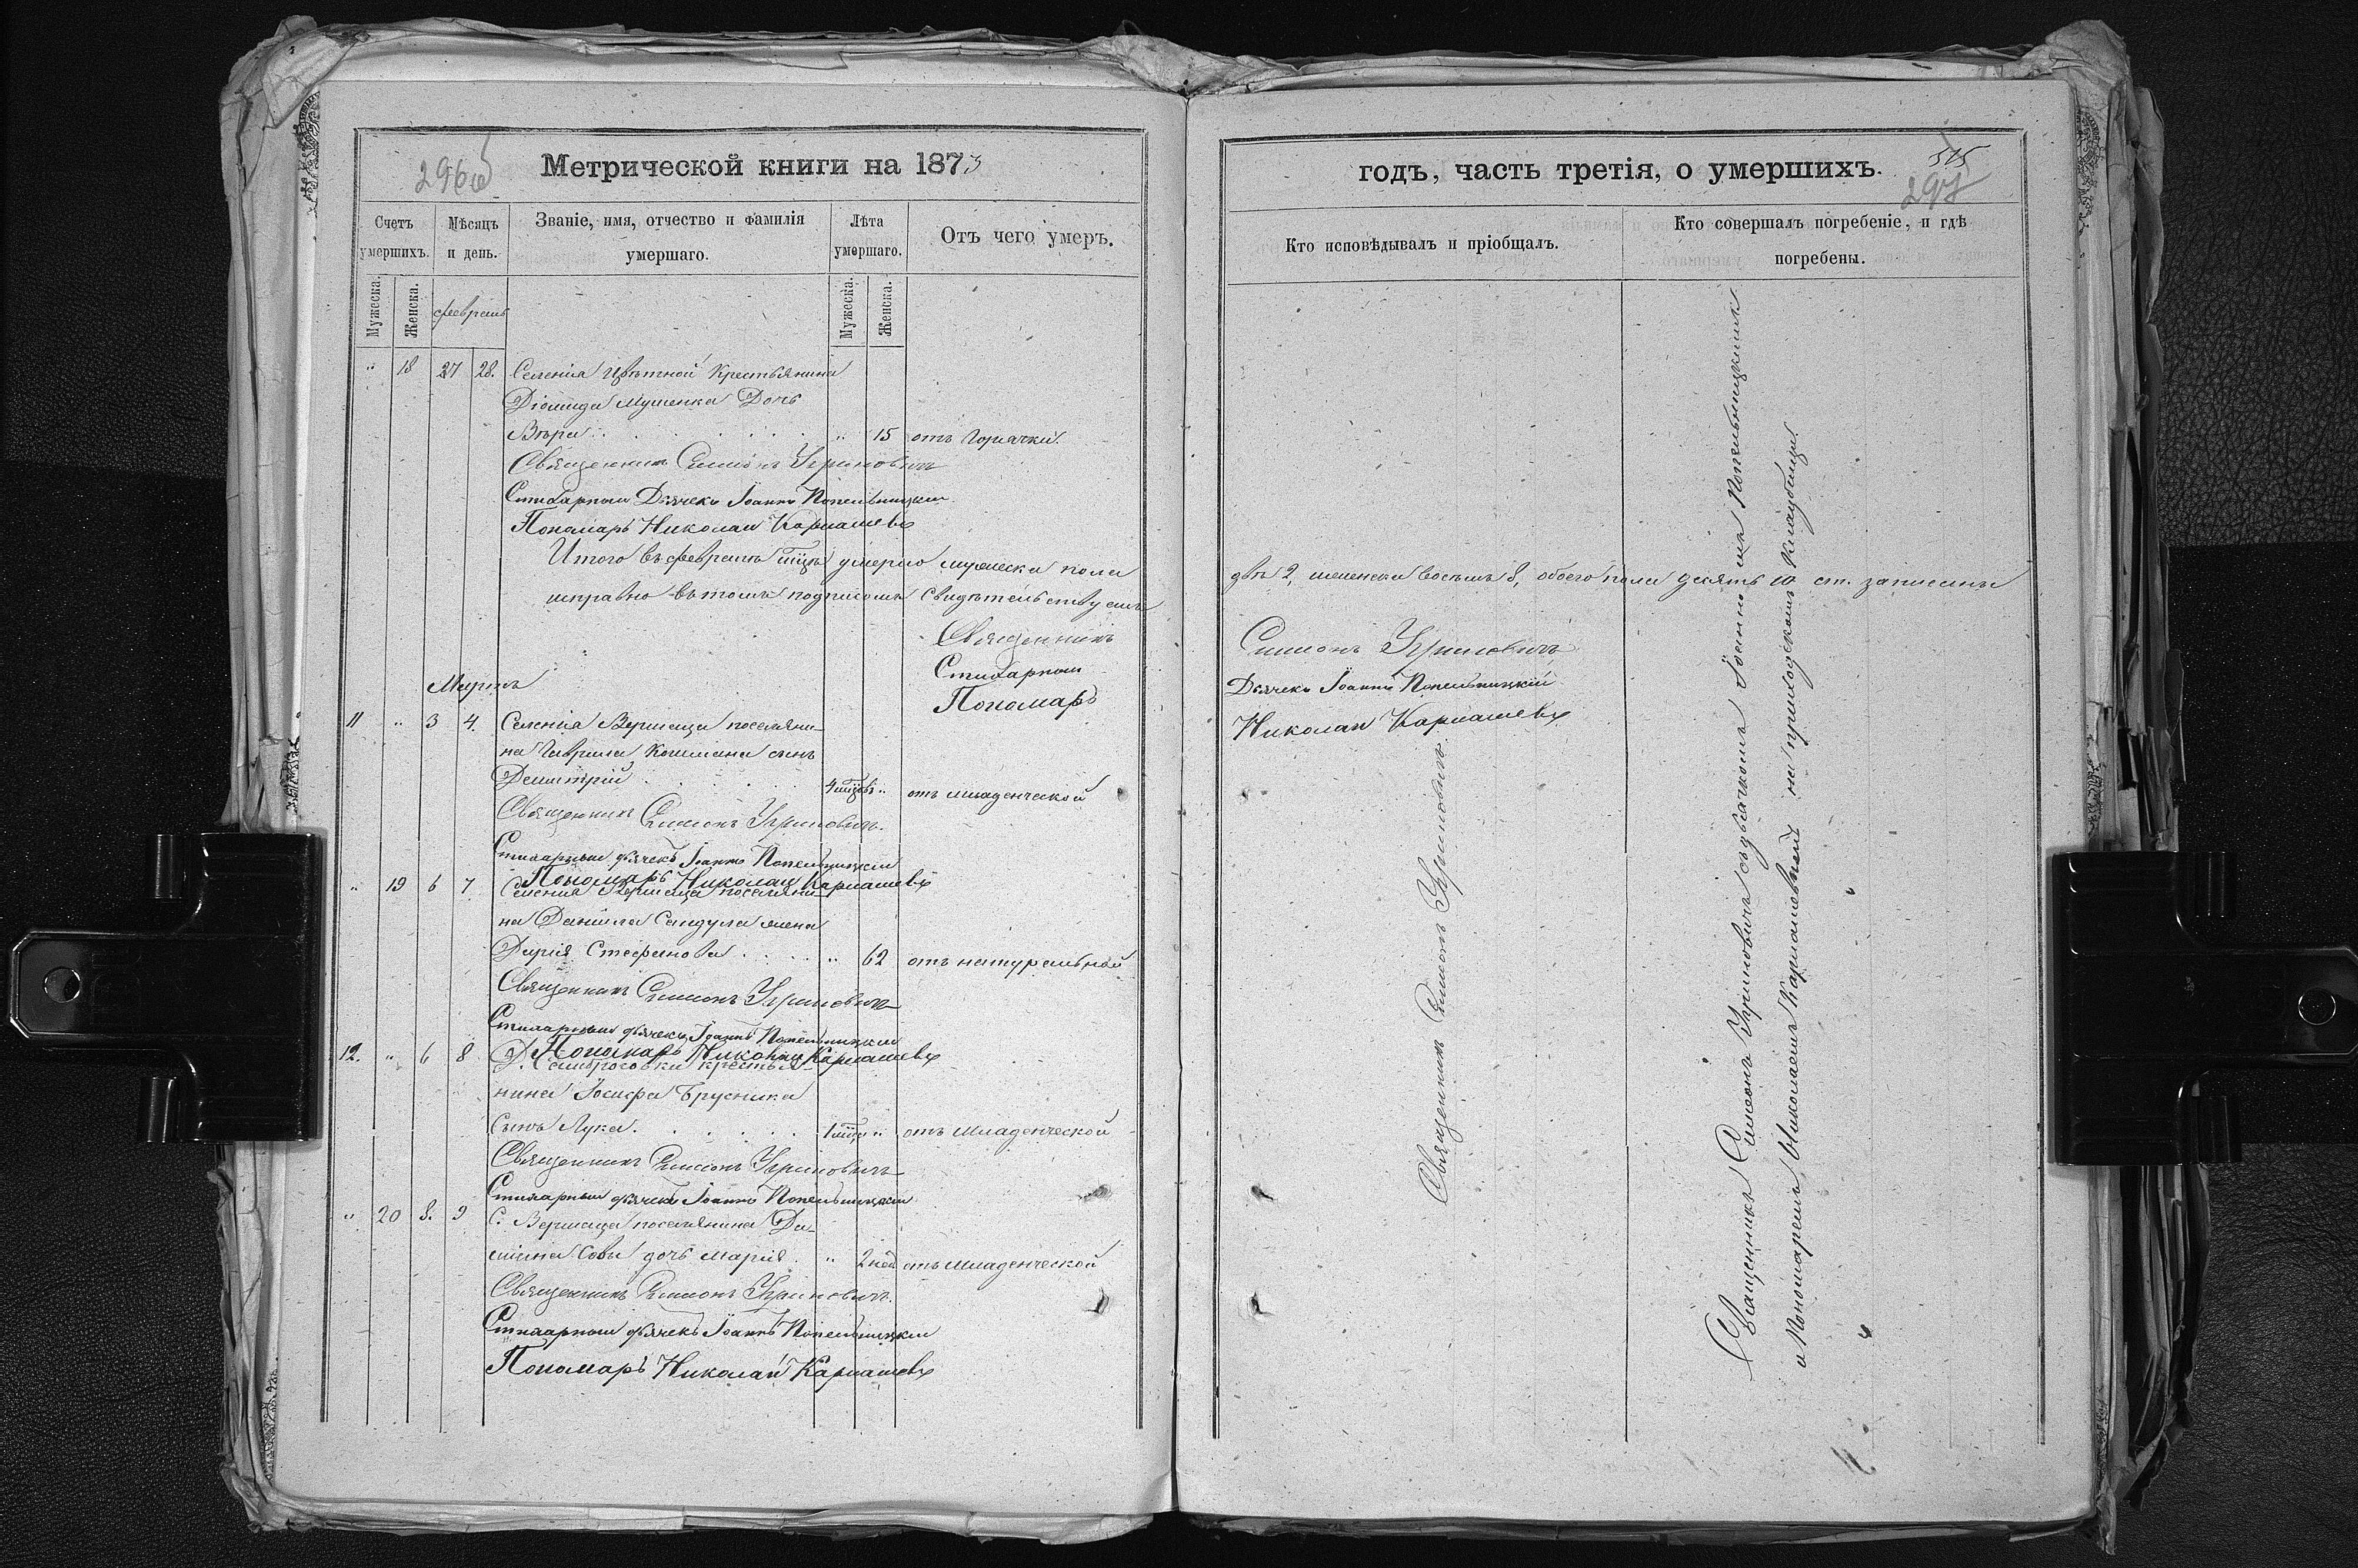 296об
Метрической книги на 1873
Счетъ умершихъ.
Мѣсяцъ и день.
Званіе, имя, отчество и фамилія умершаго.
Лѣта умершаго.
Отъ чего умеръ.
Мужеска.
Женска.
февраль
Мужеска.
Женска.
" 18 27 28. Селенія Цвѣтной Крестьянина
Діомида Мушенка Дочь
Вѣра " 15 отъ горячки.
Священникъ Симеонъ Угриновичъ
Стихарный Дьячекъ Іоаннъ Попельницкій
Пономарь Николай Карпашевъ
Итого въ февралѣ мцѣ умерло мужеска пола
исправно въ томъ подписомъ свидѣтельствуемъ
Священникъ
Стихарный
Пономарь
Мартъ
11 " 3 4. Селенія Вершаца поселяни-
на Гавріила Кошмана сынъ
Димитрій 4 мцвъ " отъ младенческой
Священникъ Симеонъ Угриновичъ.
Стихарный дьячекъ Іоаннъ Попельницкій
Пономарь Николай Карпашевъ
" 19 6 7. Селенія Вершаца поселяни-
на Даніила Сандула жена
Дарія Стефанова " 62 отъ натуральной
Священникъ Симеонъ Угриновичъ
Стихарный дьячекъ Іоаннъ Попельницкій
Пономарь Николай Карпашевъ
12. " 6 8 Д. крестья-
нина Іосифа Брусника
сынъ Лука. 1 мца " отъ младенческой
Священникъ Симеонъ Угриновичъ
Стихарный дьячекъ Іоаннъ Попельницкій
" 20 8. 9 С. Вершаца поселянина Да-
міана Совы дочь Марія. " 2 нед отъ младенческой
Священникъ Симеонъ Угриновичъ.
Стихарный дьячекъ Іоаннъ Попельницкій
Пономарь Николай Карпашевъ
годъ, часть третія, о умершихъ.
515
297
Кто исповѣдывалъ и пріобщалъ.
Кто совершалъ погребеніе, и гдѣ погребены.
два 2, женска восемь 8, обоего пола десять 10 ст. записаны
Симеонъ Угриновичъ
Дьячекъ Іоаннъ Попельницкій
Николай Карпашевъ
Священникъ Симеонъ Угриновичъ
Священникъ Симеонъ Угриновичъ съ дьячкомъ Іоанномъ Попельницкимъ
и Пономаремъ Николаемъ Карпашевымъ на приходскомъ кладбищѣ.